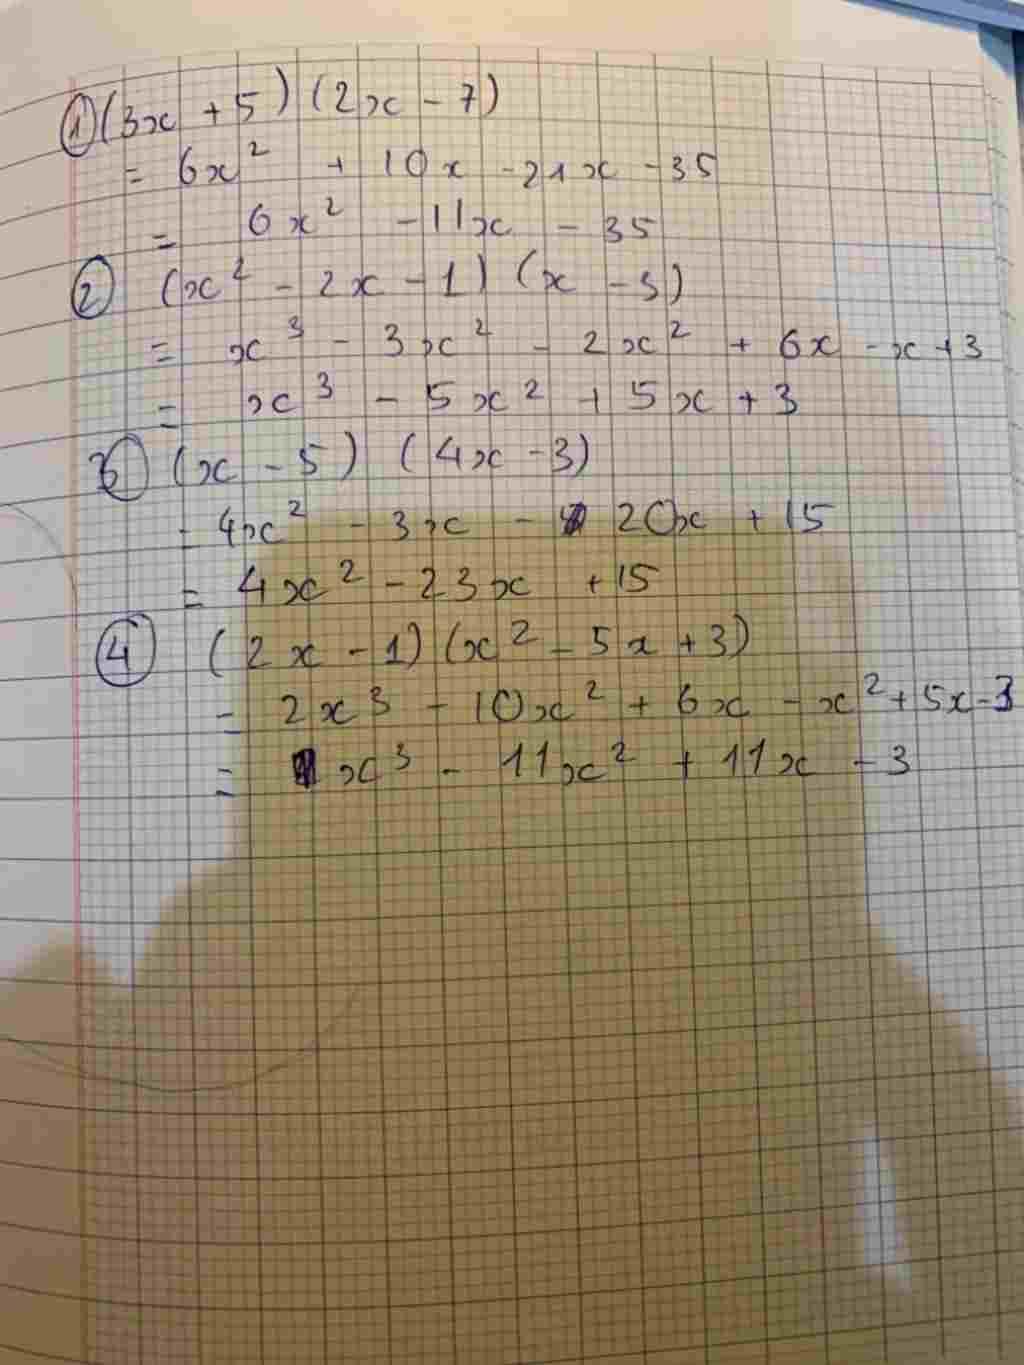 ① (3x + 5) (2x - 7)
= 6x² + 10x - 21x - 35
= 6x² - 11x - 35
② (x² - 2x - 1) (x - 3)
= x³ - 3x² - 2x² + 6x - x + 3
= x³ - 5x² + 5x + 3
③ (x - 5) (4x - 3)
= 4x² - 3x - 20x + 15
= 4x² - 23x + 15
④ (2x - 1) (x² - 5x + 3)
= 2x³ - 10x² + 6x - x² + 5x - 3
= x³ - 11x² + 11x - 3